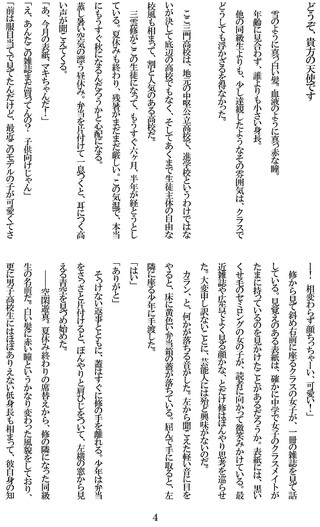 どうぞ、貴方の天使です
雪のように真っ白い髪、血液のように真っ赤な瞳。
年齢に見合わず、誰よりも小さい身長。
他の同級生よりも、少し達観したようなその雰囲気は、クラスで
どうしても浮かざるを得なかった。
ここ三門高校は、地元の中堅公立高校で、進学校というわけではな
いが決して底辺の高校でもなく、そしてあくまで生徒主体の自由な
校風も相まって、割と人気のある高校だ。
三雲修がここの生徒になって、もうすぐ六ヶ月、半年が経とうとし
ている。夏休みも終わり、残暑がまだまだ厳しい。この気温で、本当
にもうすぐ秋になるんだろうかと心配になる。
蒸し暑い空気の漂う昼休み。弁当を片付けて一息つくと、耳につく高
い声が聞こえてくる。
「あ、今月の表紙、マキちゃんだー！」
「え、あんたこの雑誌まだ買ってんの？　子供向けじゃん」
「前は服目当てで見てたんだけど、最近このモデルの子が可愛くてさ
ー！　相変わらず顔ちっちゃーい、可愛い！」
修から見て斜め右前に座るクラスの女子が、一冊の雑誌を見て話
している。見覚えのある表紙は、確かに中学で女子のクラスメイトが
たまに持っているのを見かけたことがあるだろうか。表紙には、黒い
くせ毛のセミロングの女の子が、読者に向かって微笑みかけている。最
近雑誌や広告でよく見る顔かな、とだけ修はぼんやり思考を巡らせ
た。大変申し訳ないことに、芸能人には殆ど興味がないのだ。
カラン、と、何かが落ちる音がした。左から聞こえた軽い音に目を
やると、床に黄色い弁当箱の蓋が落ちている。屈んで手に取ると、左
隣に座る少年に手渡した。
「はい」
「ありがと」
そっけない返事とともに、蓋はすぐに修の手を離れる。少年は弁当
をさらさと片付けると、ぼんやりと肩ひじをついて、左横の窓から見
える青空を見つめ始めた。
――空閑遊真。夏休み終わりの席替えから、修の隣になった同級
生の名前だ。白い髪に赤い瞳というかなり変わった風貌をしており、
更に男子高校生にはほぼありえない低身長も相まって、彼自身の知
4